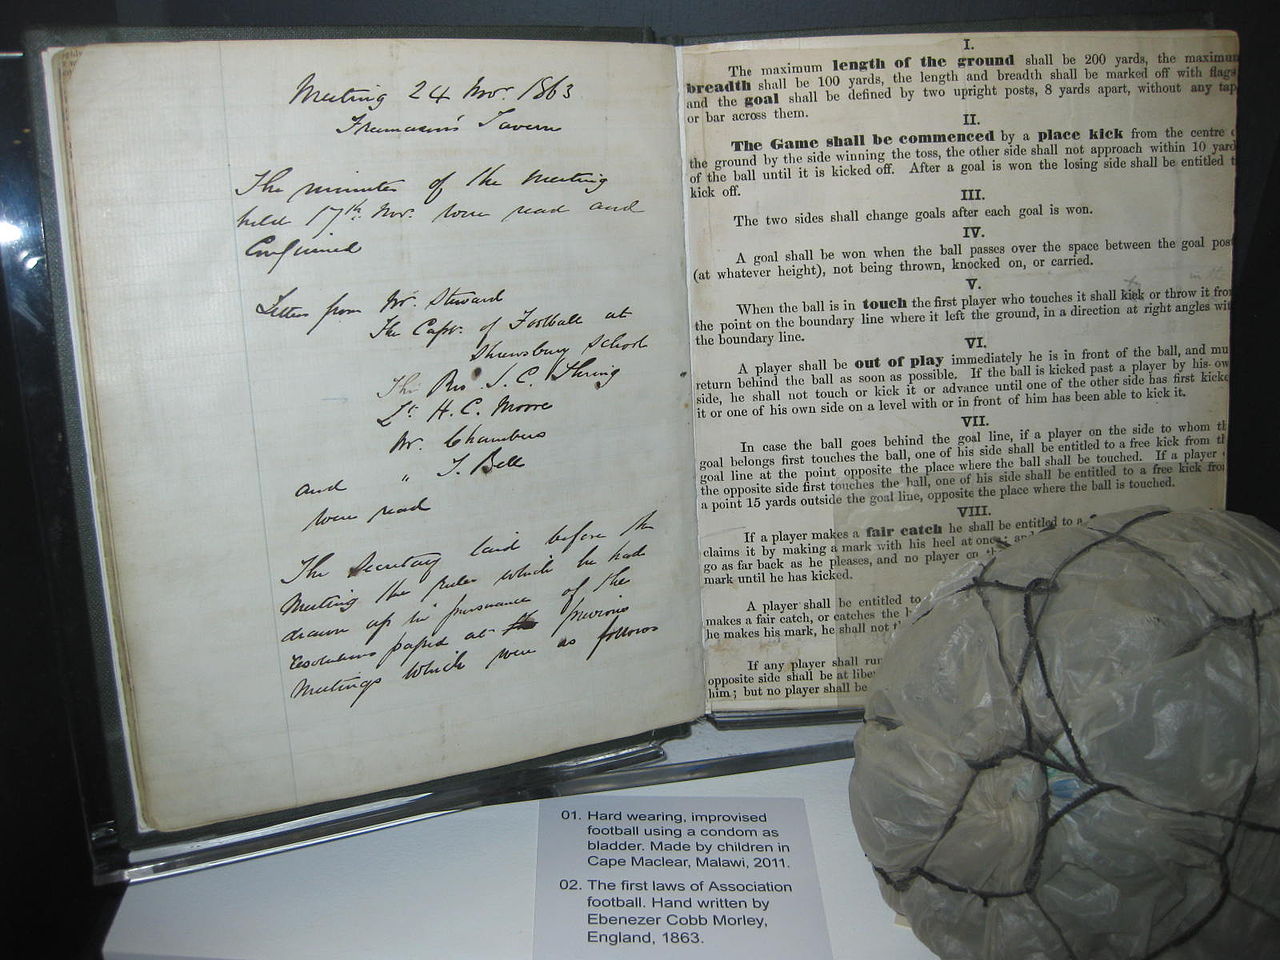 Meeting 24 Nov. 1863
Freemason's Tavern
The minutes of the meeting
held 17th Nov. were read and
Confirmed
Letters from Mr. Steward
The Captn. of Football at
Shrewsbury School
The Rev. J. C. Thring
Lt. H. C. Moore
Mr. Chambers
and " J. Bell
were read
The Secretary laid before the
Meeting the rules which he had
drawn up in pursuance of the
resolutions passed at the previous
Meetings which were as follows
I.
The maximum length of the ground shall be 200 yards, the maximum
breadth shall be 100 yards, the length and breadth shall be marked off with flags
and the goal shall be defined by two upright posts, 8 yards apart, without any tap
or bar across them.
II.
The Game shall be commenced by a place kick from the centre
the ground by the side winning the toss, the other side shall not approach within 10 yard
of the ball until it is kicked off. After a goal is won the losing side shall be entitled t
kick off.
III.
The two sides shall change goals after each goal is won.
IV.
A goal shall be won when the ball passes over the space between the goal post
(at whatever height), not being thrown, knocked on, or carried.
V.
When the ball is in touch the first player who touches it shall kick or throw it from
the point on the boundary line where it left the ground, in a direction at right angles wit
the boundary line.
VI.
A player shall be out of play immediately he is in front of the ball, and mu
return behind the ball as soon as possible. If the ball is kicked past a player by his ow
side, he shall not touch or kick it or advance until one of the other side has first kicke
it or one of his own side on a level with or in front of him has been able to kick it.
VII.
In case the ball goes behind the goal line, if a player on the side to whom th
goal belongs first touches the ball, one of his side shall be entitled to a free kick from th
goal line at the point opposite the place where the ball shall be touched. If a player
the opposite side first touches the ball, one of his side shall be entitled to a free kick from
a point 15 yards outside the goal line, opposite the place where the ball is touched.
VIII.
If a player makes a fair catch he shall be entitled to a
claims it by making a mark with his heel at once; and
go as far back as he pleases, and no player on
mark until he has kicked.
A player shall be entitled to
makes a fair catch, or catches the
he makes his mark, he shall not
If any player shall run
opposite side shall be at liber
him; but no player shall be
01. Hard wearing, improvised
football using a condom as
bladder. Made by children in
Cape Maclear, Malawi, 2011.
02. The first laws of Association
football. Hand written by
Ebenezer Cobb Morley,
England, 1863.